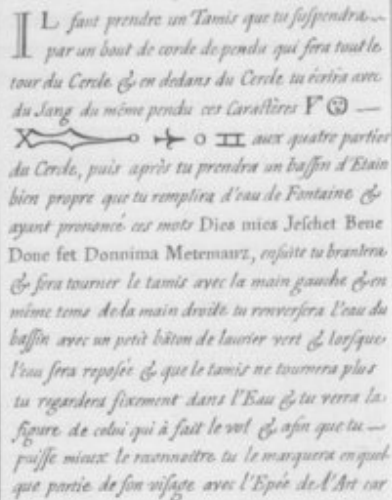 IL faut prendre un Tamis que tu suspendra
par un bout de corde de pendu qui fera tout le
tour du Cercle & en dedans du Cercle tu écrira avec
du Sang du même pendu ces Caractères
aux quatre parties
du Cercle, puis après tu prendra un bassin d'Etain
bien propre que tu remplira d'eau de Fontaine &
ayant prononcé ces mots Dies mies Jeschet Bene
Done fet Donnima Metemauz, ensuite tu branlera
& fera tourner le tamis avec la main gauche & en
même tems de la main droite tu renversera l'eau du
bassin avec un petit bâton de laurier vert & lorsque
l'eau sera reposée & que le tamis ne tournera plus
tu regardera fixement dans l'Eau & tu verra la
figure de celui qui à fait le vol & afin que tu —
puisse mieux le reconnoitre tu le marquera en quel-
que partie de son visage avec l'Epée de l'Art car